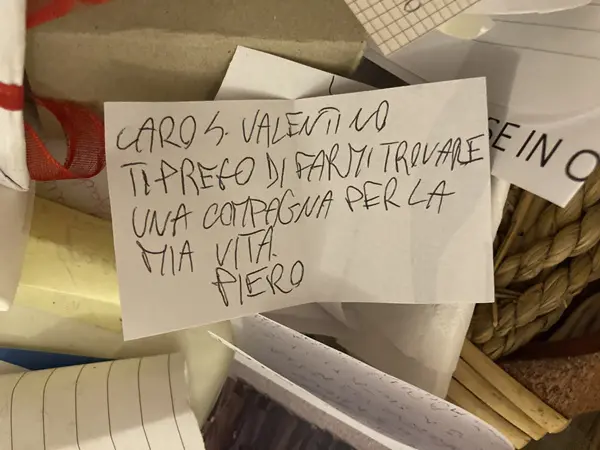 CARO S. VALENTINO
TI PREGO DI FARMI TROVARE
UNA COMPAGNA PER LA
MIA VITA.
PIERO
SE IN O